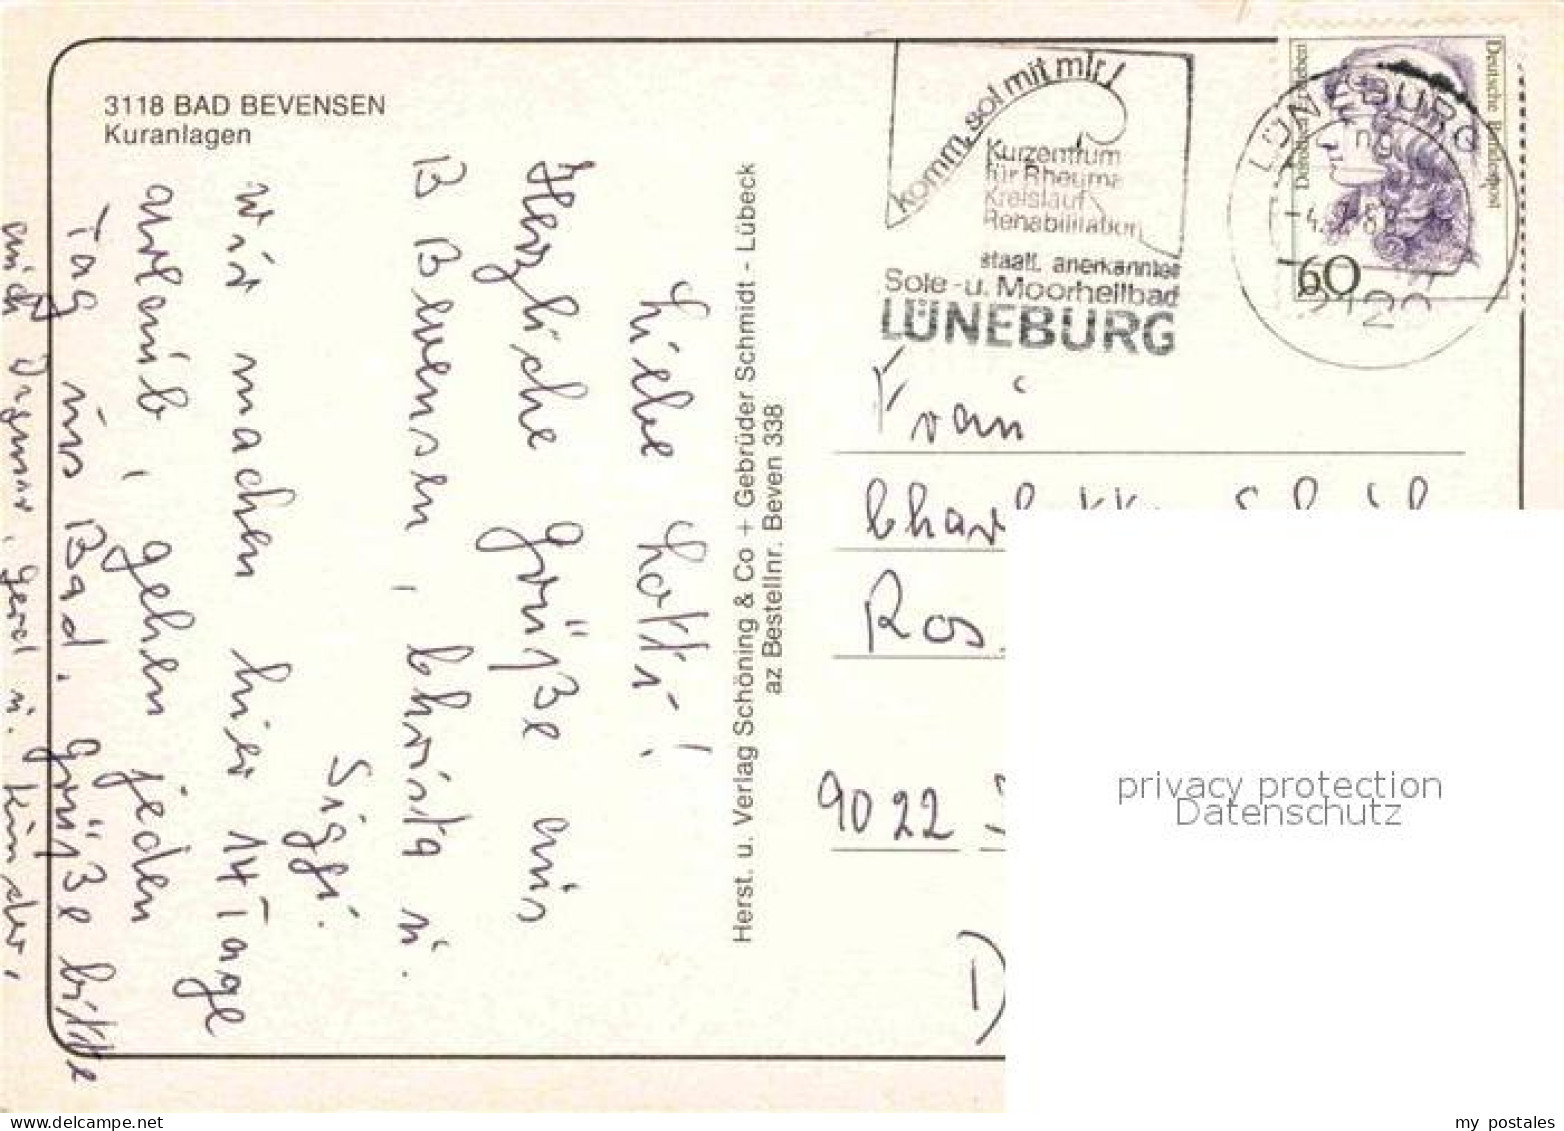 3118 BAD BEVENSEN
Kuranlagen
Liebe Lotti!
Herzliche Grüße aus
B Bevensen, Christa u.
Siggi.
Wir machen hier 14 Tage
Urlaub, gehen jeden
Tag ins Bad. Grüße bitte
auch Dagmar, Gerd u. Kinder,
Herst. u. Verlag Schöning & Co + Gebrüder Schmidt - Lübeck
az Bestellnr. Beven 338
komm, sol mit mir!
Kurzentrum
für Rheuma
Kreislauf
Rehabilitation
staatl. anerkanntes
Sole-u. Moorheilbad
LÜNEBURG
Deutsche Bundespost
60
LÜNEBURG
2120
Frau
Ros
9022
privacy protection
Datenschutz
my postales